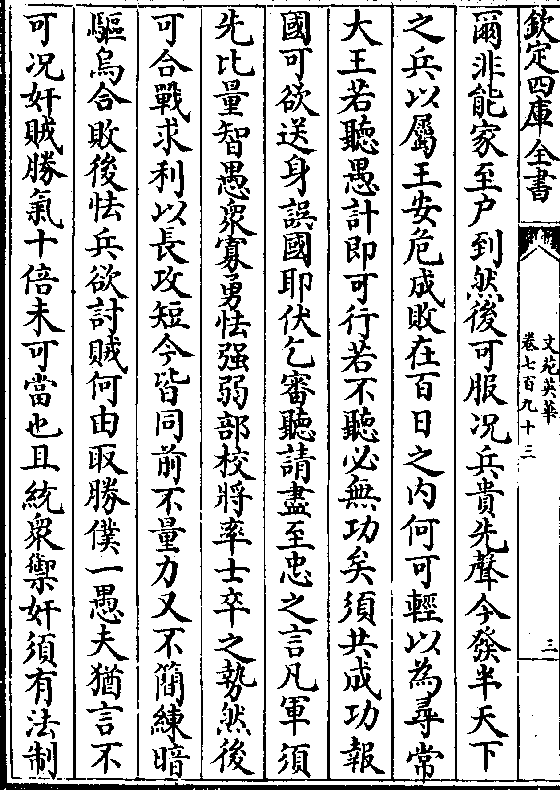 欽定四庫全書
文苑英華
卷七百九十三
三
爾非能家至户到然後可服况兵貴先聲今發半天下
之兵以屬王安危成敗在百日之内何可輕以為尋常
大王若聽愚計即可行若不聽必無功矣須共成功報
國可欲送身誤國耶伏乞審聽請盡至忠之言凡軍須
先比量智愚衆寡勇怯强弱部校將率士卒之勢然後
可合戰求利以長攻短今皆同前不量力又不簡練暗
驅烏合敗後怯兵欲討賊何由取勝僕一愚夫猶言不
可况奸賊勝氣十倍未可當也且統衆禦奸須有法制